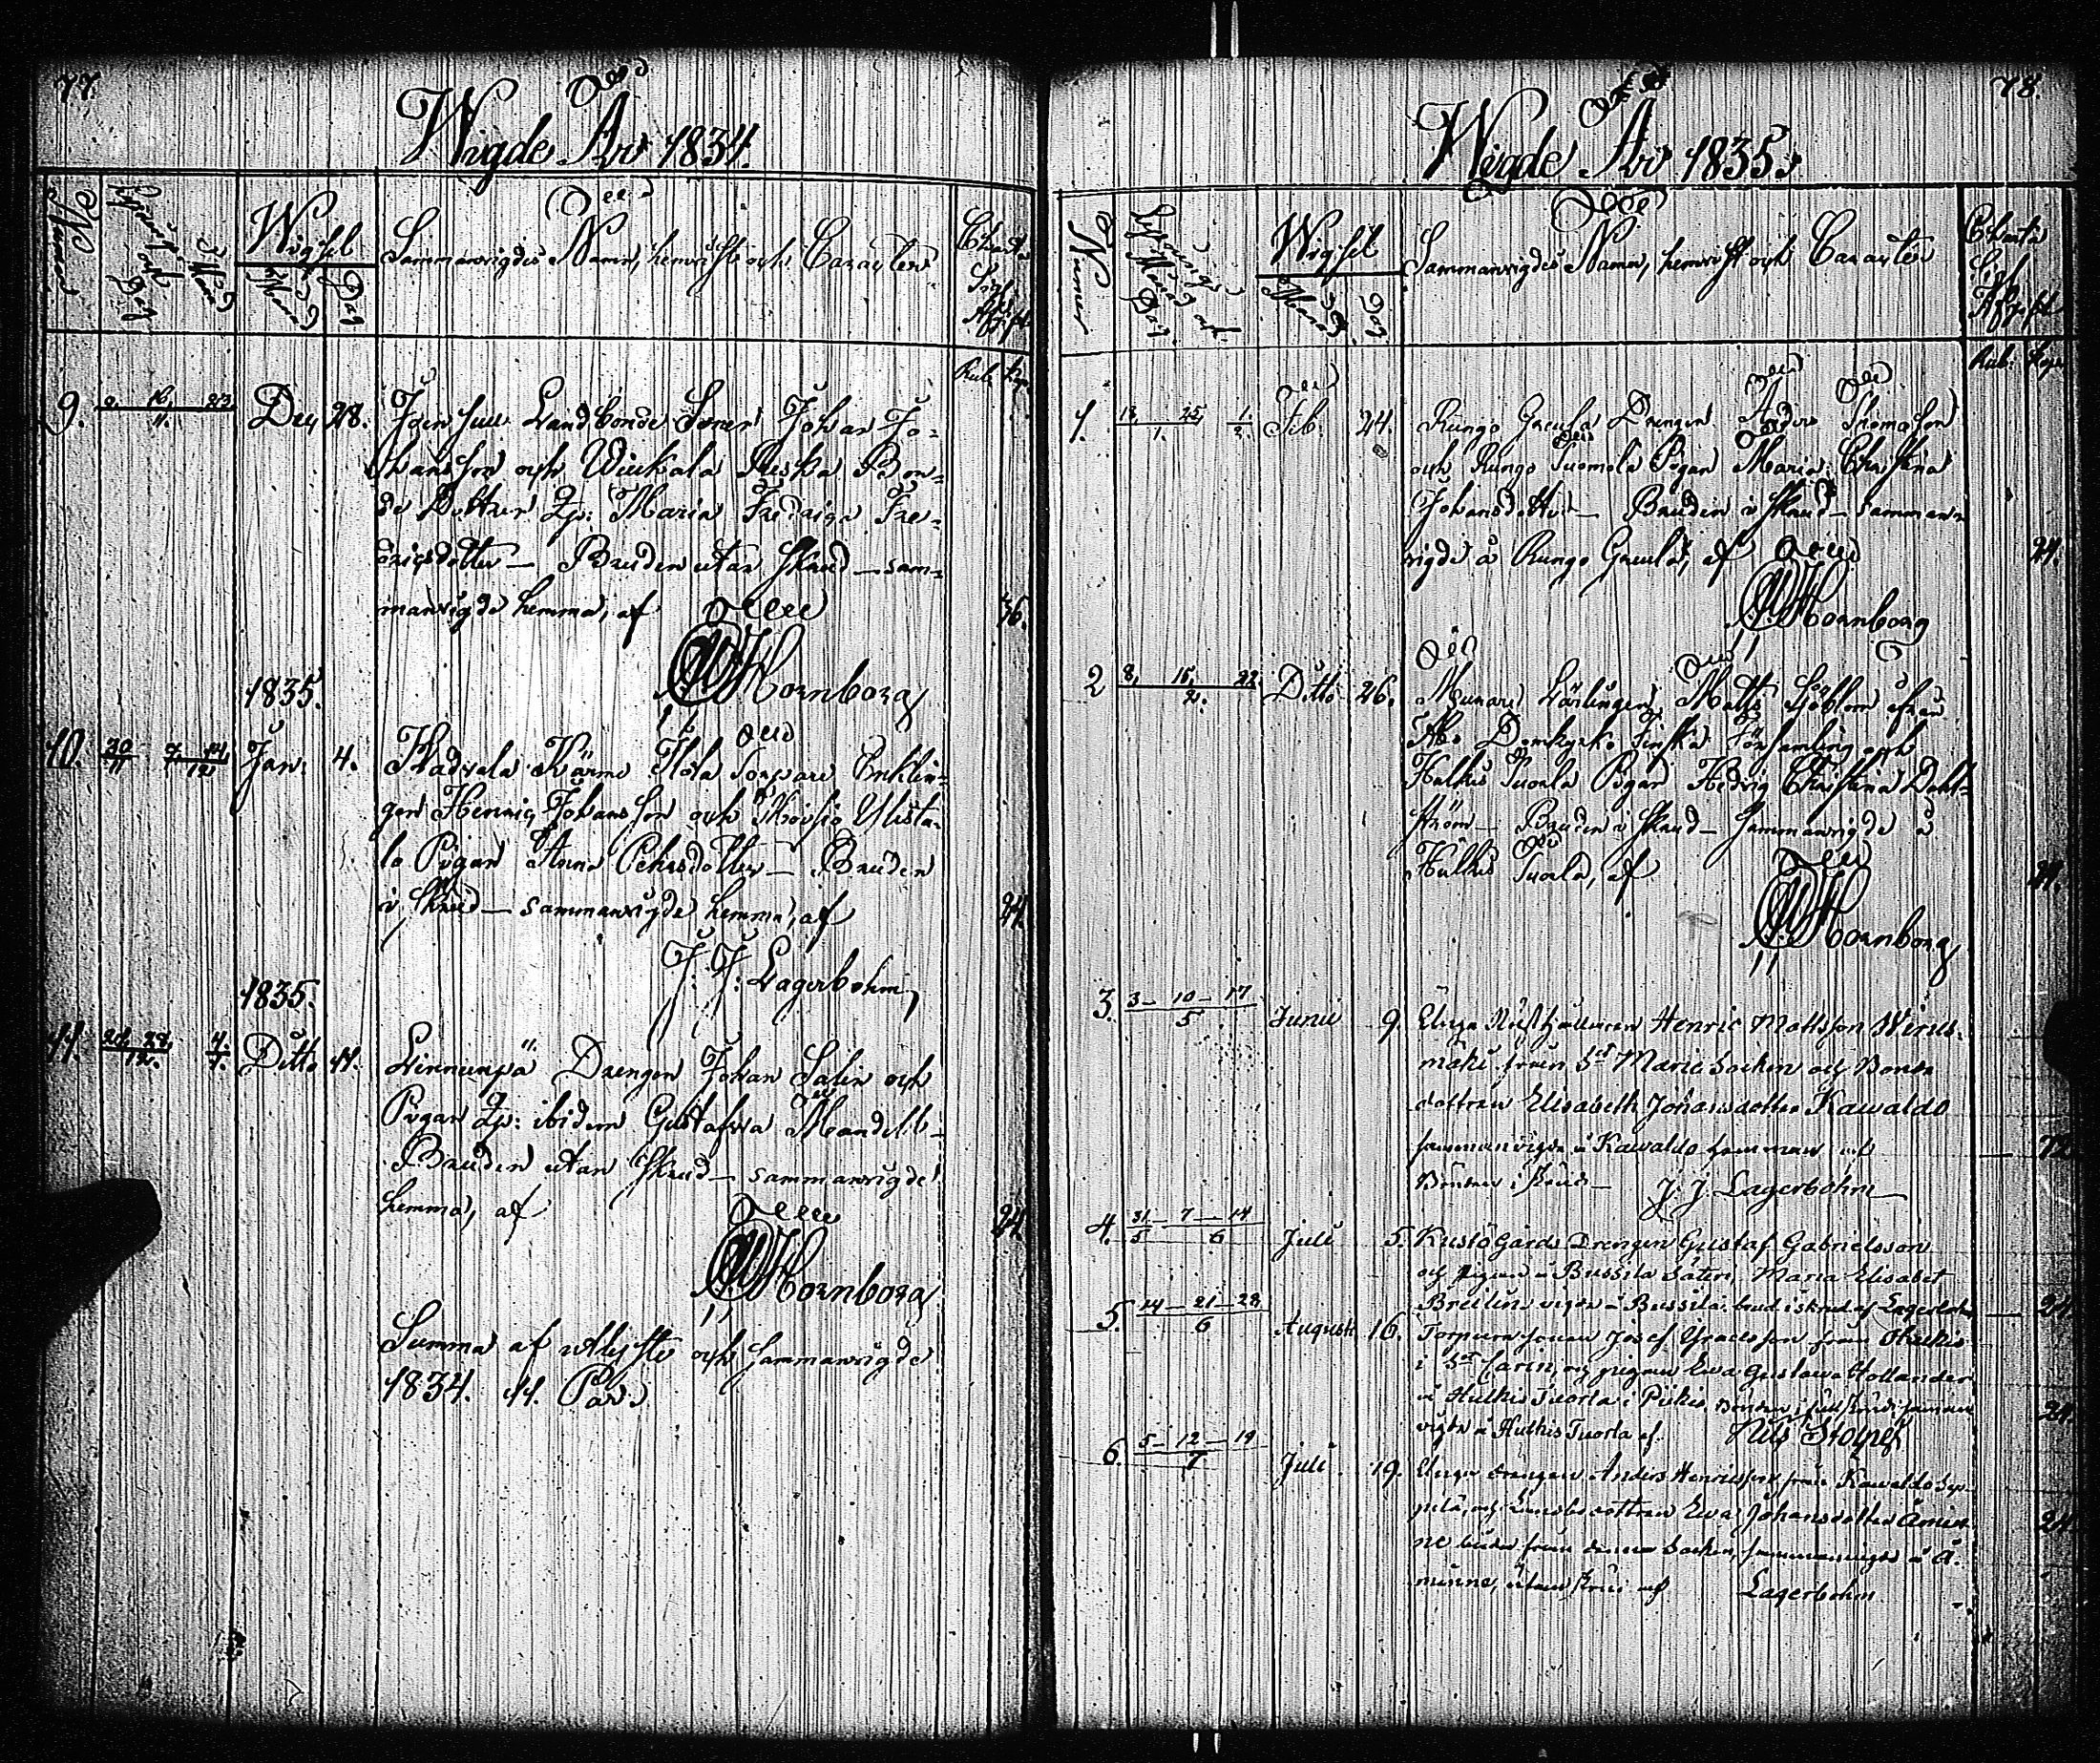 77.
Wigde År 1834.
Numer
Lysnings Månad och Dag
Wigsel
Månad
Dag
Sammanvigdes Namn, hemvist och Caracter
Charta Sigill Afgift
Rub. Kop.
9. 2. 16. 23. / 11. Dec 28. Landbonde Sonen Johan Jo-
hansson och Wiukala Riska Bon-
de Dottren Qp: Maria Fredriga Fre-
driksdotter — Bruden utan skrud — sam-
manvigde hemma, af 36.
Hornborg
1835.
10. 30/11 7. 14./12 Jan: 4. Kadvala Kärme Flola Torpare Enklin-
gen Henric Johansson och Moisio Ylista-
lo Pigan Anna Pehrsdotter — Bruden
i skrud — sammanvigde hemma, af 24.
J. J. Lagerbohm
1835.
11. 21. 28./12. 4./1. Ditto 11. Linnunpä Drengen Johan Salin och
Pigan Qp: ibidem Gustafva Mandell —
Bruden utan skrud — sammanvigde
hemma, af 24.
Hornborg
Summa af utlyste och sammanvigde
1834. 11. Par.
78.
Wigde År 1835.
Numer
Lysnings Månad och Dag
Wigsel
Månad
Dag
Sammanvigdes Namn, hemvist och Caracter
Charta Sigill Afgift
Rub. Kop.
1. 18. 25./1. 1./2. Feb. 24. Rungo Greula Drengen Anders Thomasson
och Rungo Tuomola Pigan Maria Christina
Johansdotter — Bruden i skrud — samman-
vigde å Rungo Greula, af 24.
Hornborg
2 8. 15. 22./2. Ditto 26. Murare Lärlingen Matts Sjöblom ifrån
Åbo Domkyrko Finska Församling och
Hulkis Tuorla Pigan Hedvig Christina Dahl-
ström — Bruden i skrud — Sammanvigde å
Hulkis Tuorla, af 24.
Hornborg
3. 3 — 10 — 17 / 5 Junii 9. Unga Rusthållaren Henric Mattsson Wirus-
mäki från St Marie Socken och Bonde
dottren Elisabeth Johansdotter Kawaldo
sammanvigde i Kawaldo hemman af 72
Bruden i skrud — J. J. Lagerbohm
4. 31/5 — 7 — 14/6 Juli 5. Kustö Gårds Drengen Gustaf Gabrielsson
och pigan å Bussila Säteri Maria Elisabet
Breilin vigde å Bussila brud i skrud af Lagerbohm 24
5. 14 — 21 — 28 / 6 Augusti 16. Torpare sonen Josef från
i St Carin, och pigan Eva Gustava Hollander
å Hulkis Tuorla i Pikis, Bruden i full skrud samman
vigde å Hulkis Tuorla af 24.
6. 5 — 12 — 19 / 7 Juli 19. Unge drengen Anders Henricsson från Kawaldo
och dottren Eva Johansdotter Åmin- 24
ne båda från denna Socken, sammanvigde å Å-
minne, utan skrud af Lagerbohm